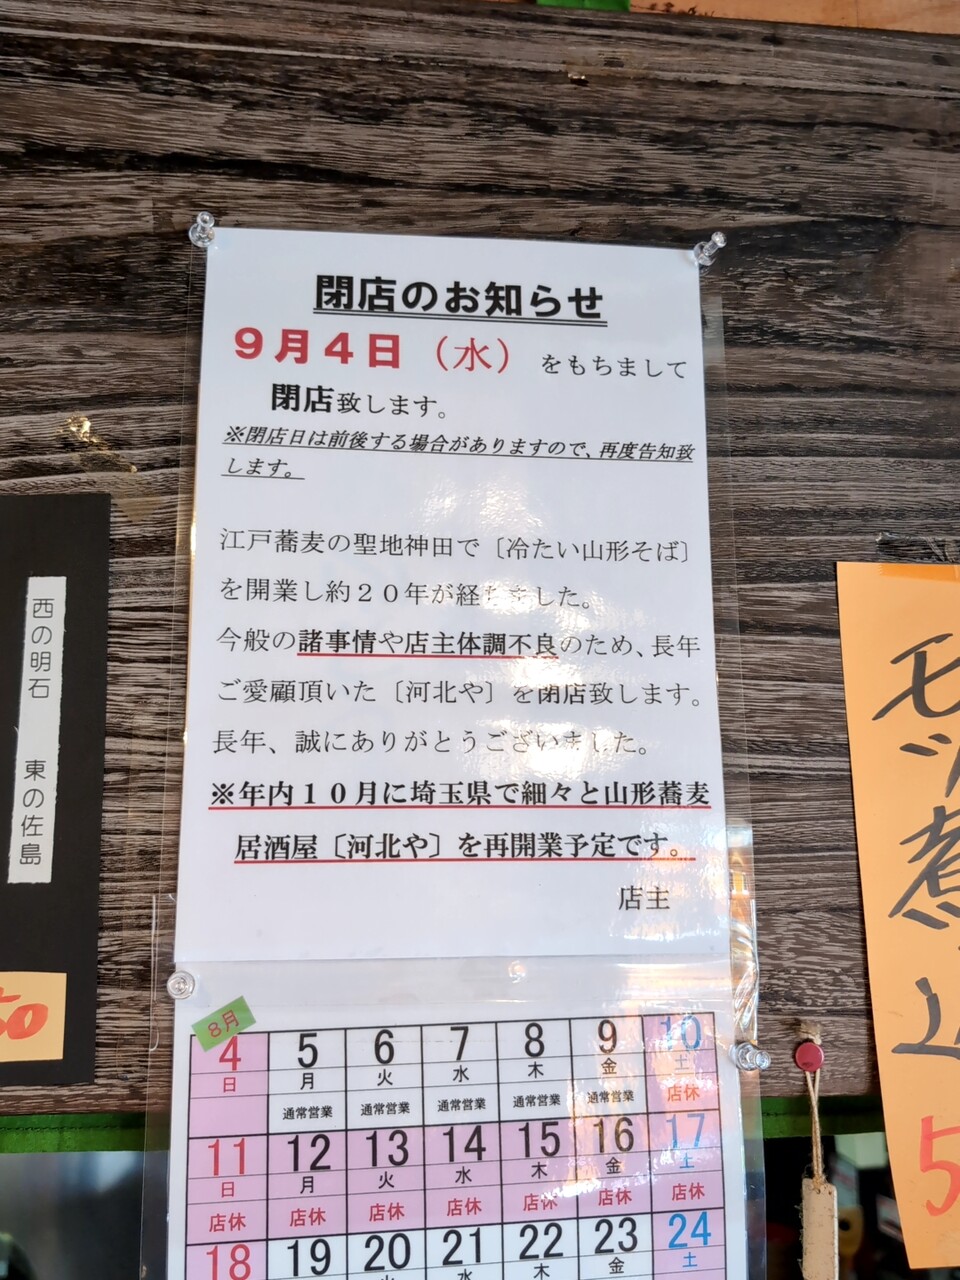 閉店のお知らせ
9月4日（水）をもちまして
閉店致します。
※閉店日は前後する場合がありますので、再度告知致
します。
江戸蕎麦の聖地神田で〔冷たい山形そば〕
を開業し約20年が経ちました。
今般の諸事情や店主体調不良のため、長年
ご愛顧頂いた〔河北や〕を閉店致します。
長年、誠にありがとうございました。
※年内10月に埼玉県で細々と山形蕎麦
居酒屋〔河北や〕を再開業予定です。
店主
8月
4 5 6 7 8 9 10
日 月 火 水 木 金 土
通常営業 通常営業 通常営業 通常営業 通常営業 店休
11 12 13 14 15 16 17
日 月 火 水 木 金 土
店休 店休 店休 店休 店休 店休 店休
18 19 20 21 22 23 24
火 水 木 金 土
西の明石 東の佐島
50
煮込
5